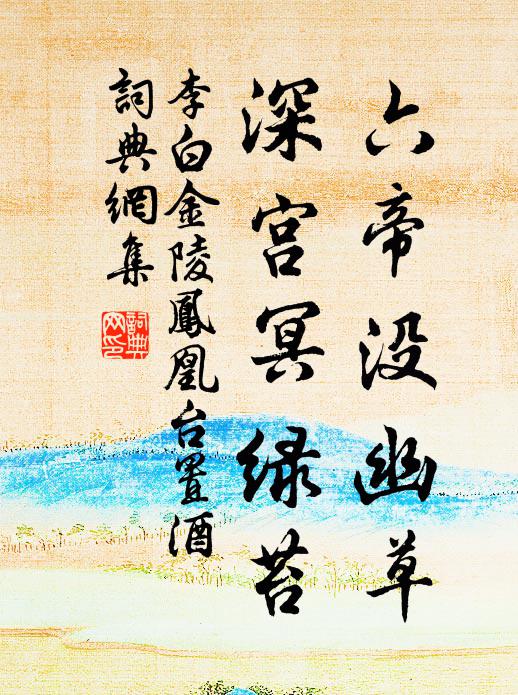 六帝没幽草
深宫冥绿苔
李白金陵鳳凰台置酒
詞典網集
詞典
网印